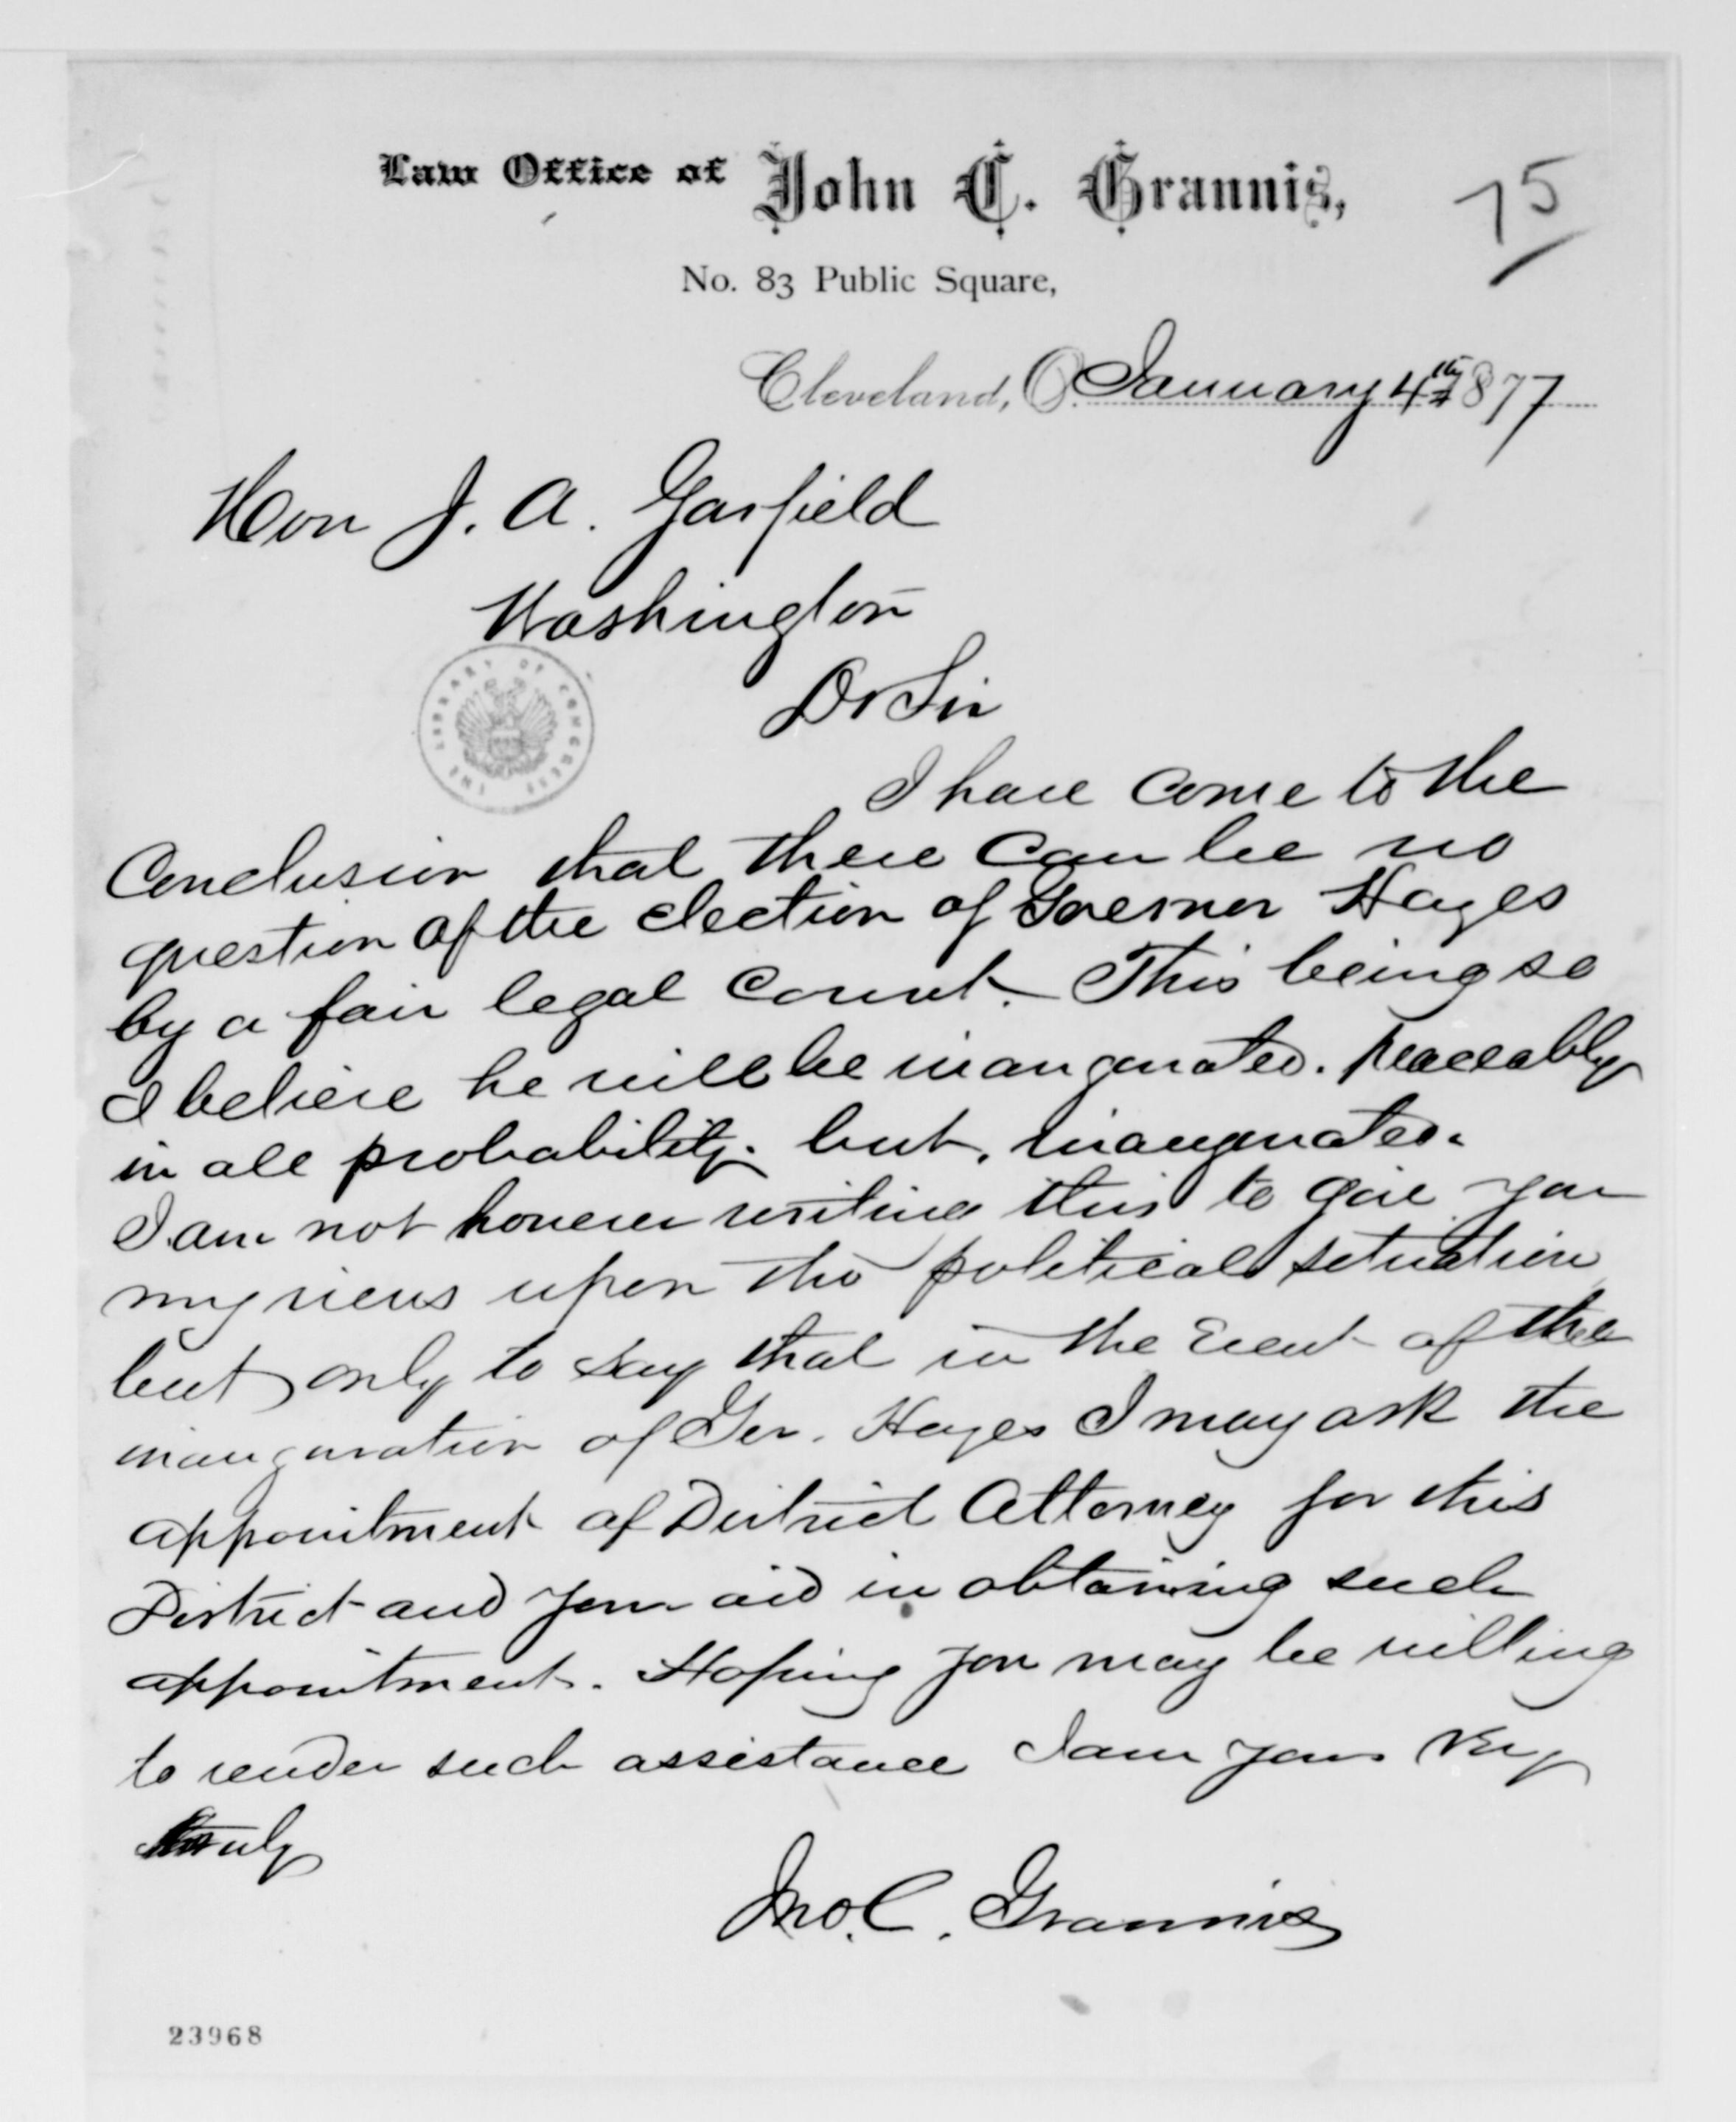 Law Office of John C. Grannis,
75
No. 83 Public Square,
Cleveland, O. January 4th 1877
Hon J. A. Garfield
Washington
Dr Sir
THE LIBRARY OF CONGRESS
I have come to the
Conclusion that there can be no
question of the election of Governor Hayes
by a fair legal count. This being so
I believe he will be inaugurated. peaceably
in all probability. but, inaugurated.
I am not however writing this to give you
my views upon the political situation
but only to say that in the event of the
inauguration of Gov. Hayes I may ask the
appointment of District Attorney for this
District and your aid in obtaining such
appointment. Hoping you may be willing
to render such assistance I am yours Very
truly
Jno. C. Grannis
23968